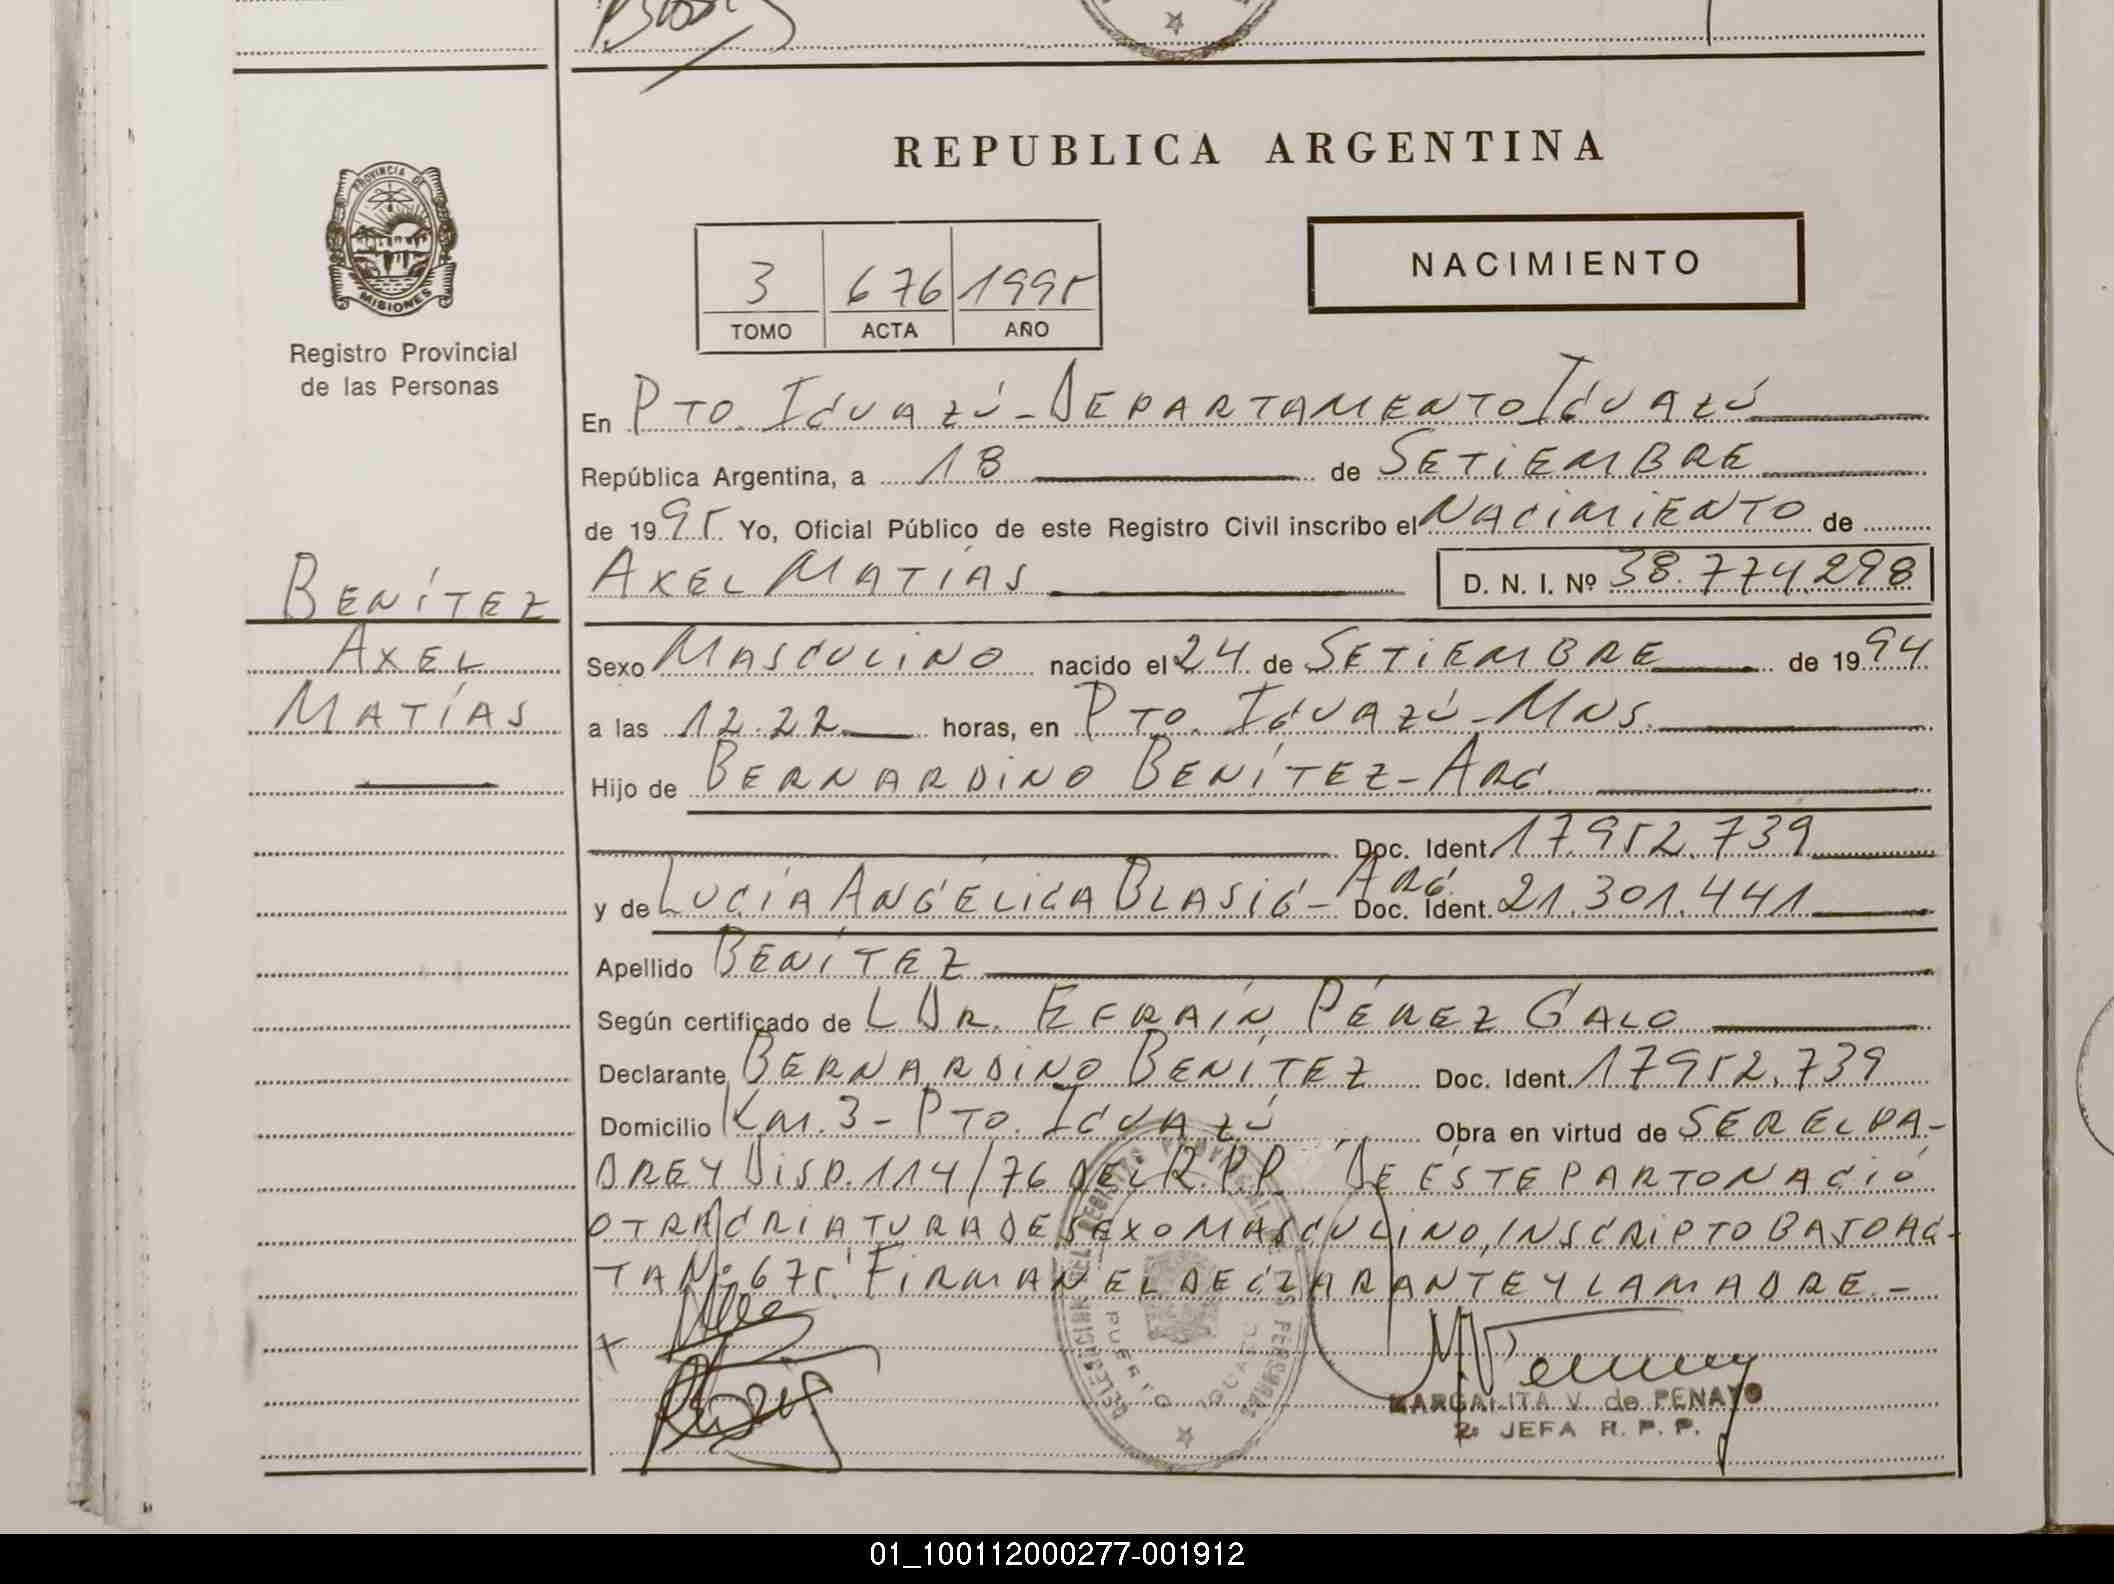 REPUBLICA ARGENTINA
PROVINCIA DE
MISIONES
Registro Provincial
de las Personas
NACIMIENTO
3 676 1995
TOMO ACTA AÑO
En Pto. Iguazú - Departamento Iguazú
República Argentina, a 18 de Setiembre
de 1995 Yo, Oficial Público de este Registro Civil inscribo el Nacimiento de
Benítez
Axel
Matías
Axel Matías D. N. I. Nº 38.774.298
Sexo Masculino nacido el 24 de Setiembre de 1994
a las 12.22 horas, en Pto. Iguazú - Mns.
Hijo de Bernardino Benítez - Arg.
Doc. Ident. 17.952.739
y de Lucía Angélica Blasig - Arg. Doc. Ident. 21.301.441
Apellido Benítez
Según certificado de L Dr. Efraín Pérez Galo
Declarante Bernardino Benítez Doc. Ident. 17.952.739
Domicilio Km. 3 - Pto. Iguazú Obra en virtud de ser el pa-
dre y Disp. 114/76 del R.P.P. De éste parto nació
otra criatura de sexo masculino, inscripto bajo ac-
ta Nº 675. Firman el declarante y la madre.-
DELEGACION DEL REGISTRO PROVINCIAL DE LAS PERSONAS
PUERTO IGUAZU
MARGALITA V. de PENAYO
2º JEFA R. P. P.
01_100112000277-001912